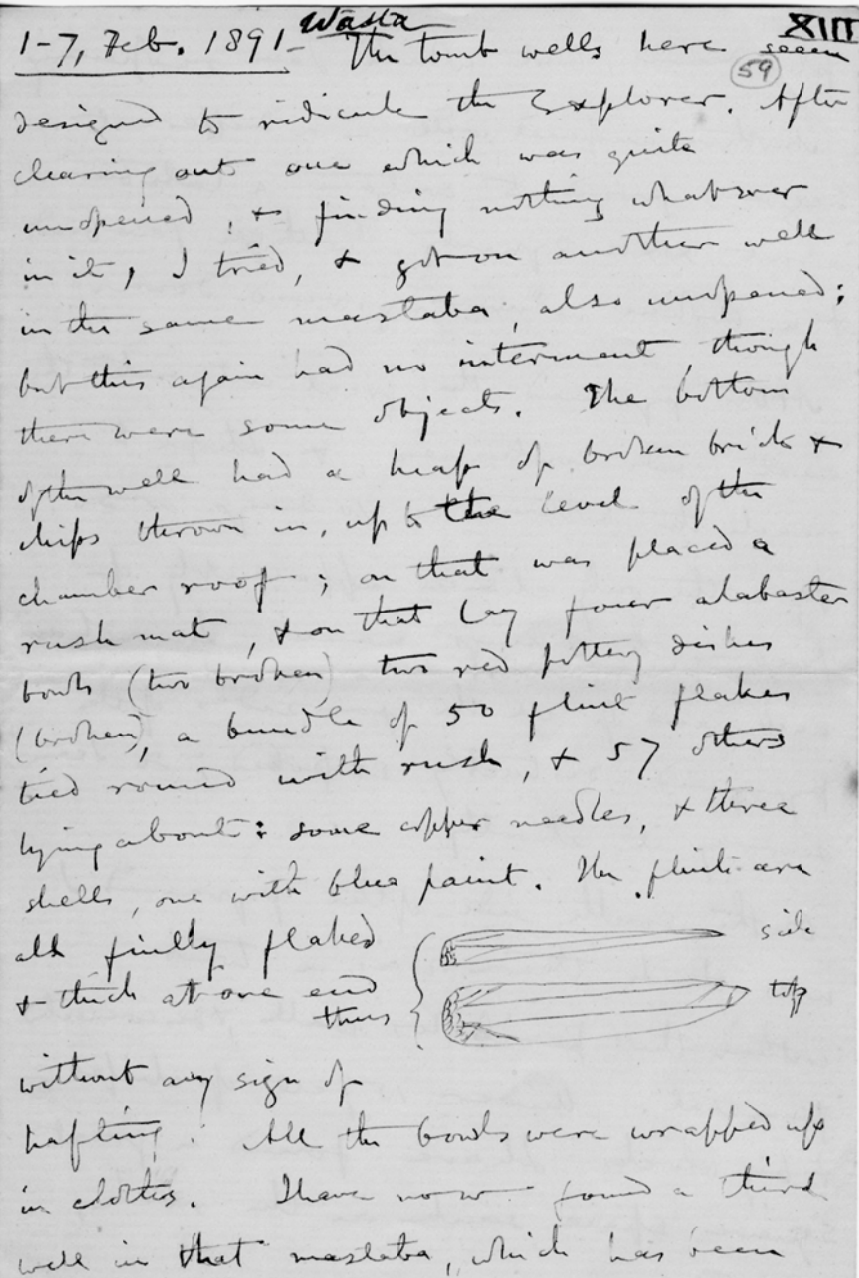 Wasta XIII
1-7, Feb. 1891- The tomb wells here seem
59
designed to ridicule the Explorer. After
clearing out one which was quite
unopened, & finding nothing whatever
in it, I tried, & got on another well
in the same mastaba, also unopened;
but this again had no interment though
there were some objects. The bottom
of the well had a heap of broken brick &
chips thrown in, up to the level of the
chamber roof; on that was placed a
rush mat, & on that lay four alabaster
bowls (two broken) two red pottery dishes
(broken), a bundle of 50 flint flakes
tied round with rush, & 57 others
lying about: some copper needles, & three
shells, one with blue paint. The flints are
all finely flaked side
& thick at one end top
thus
without any sign of
hafting. All the bowls were wrapped up
in clothes. I have now found a third
well in that mastaba, which has been